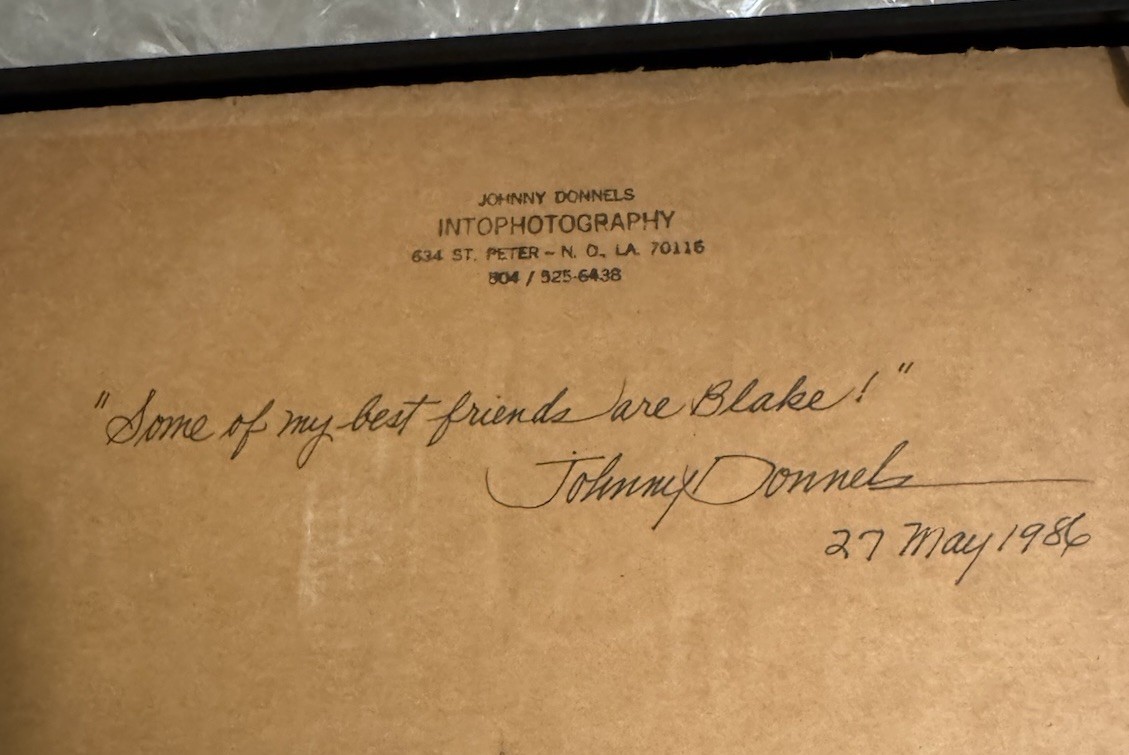 JOHNNY DONNELS
INTOPHOTOGRAPHY
634 ST. PETER – N. O., LA. 70116
504 / 525-6438
"Some of my best friends are Blake!"
Johnny Donnels
27 May 1986